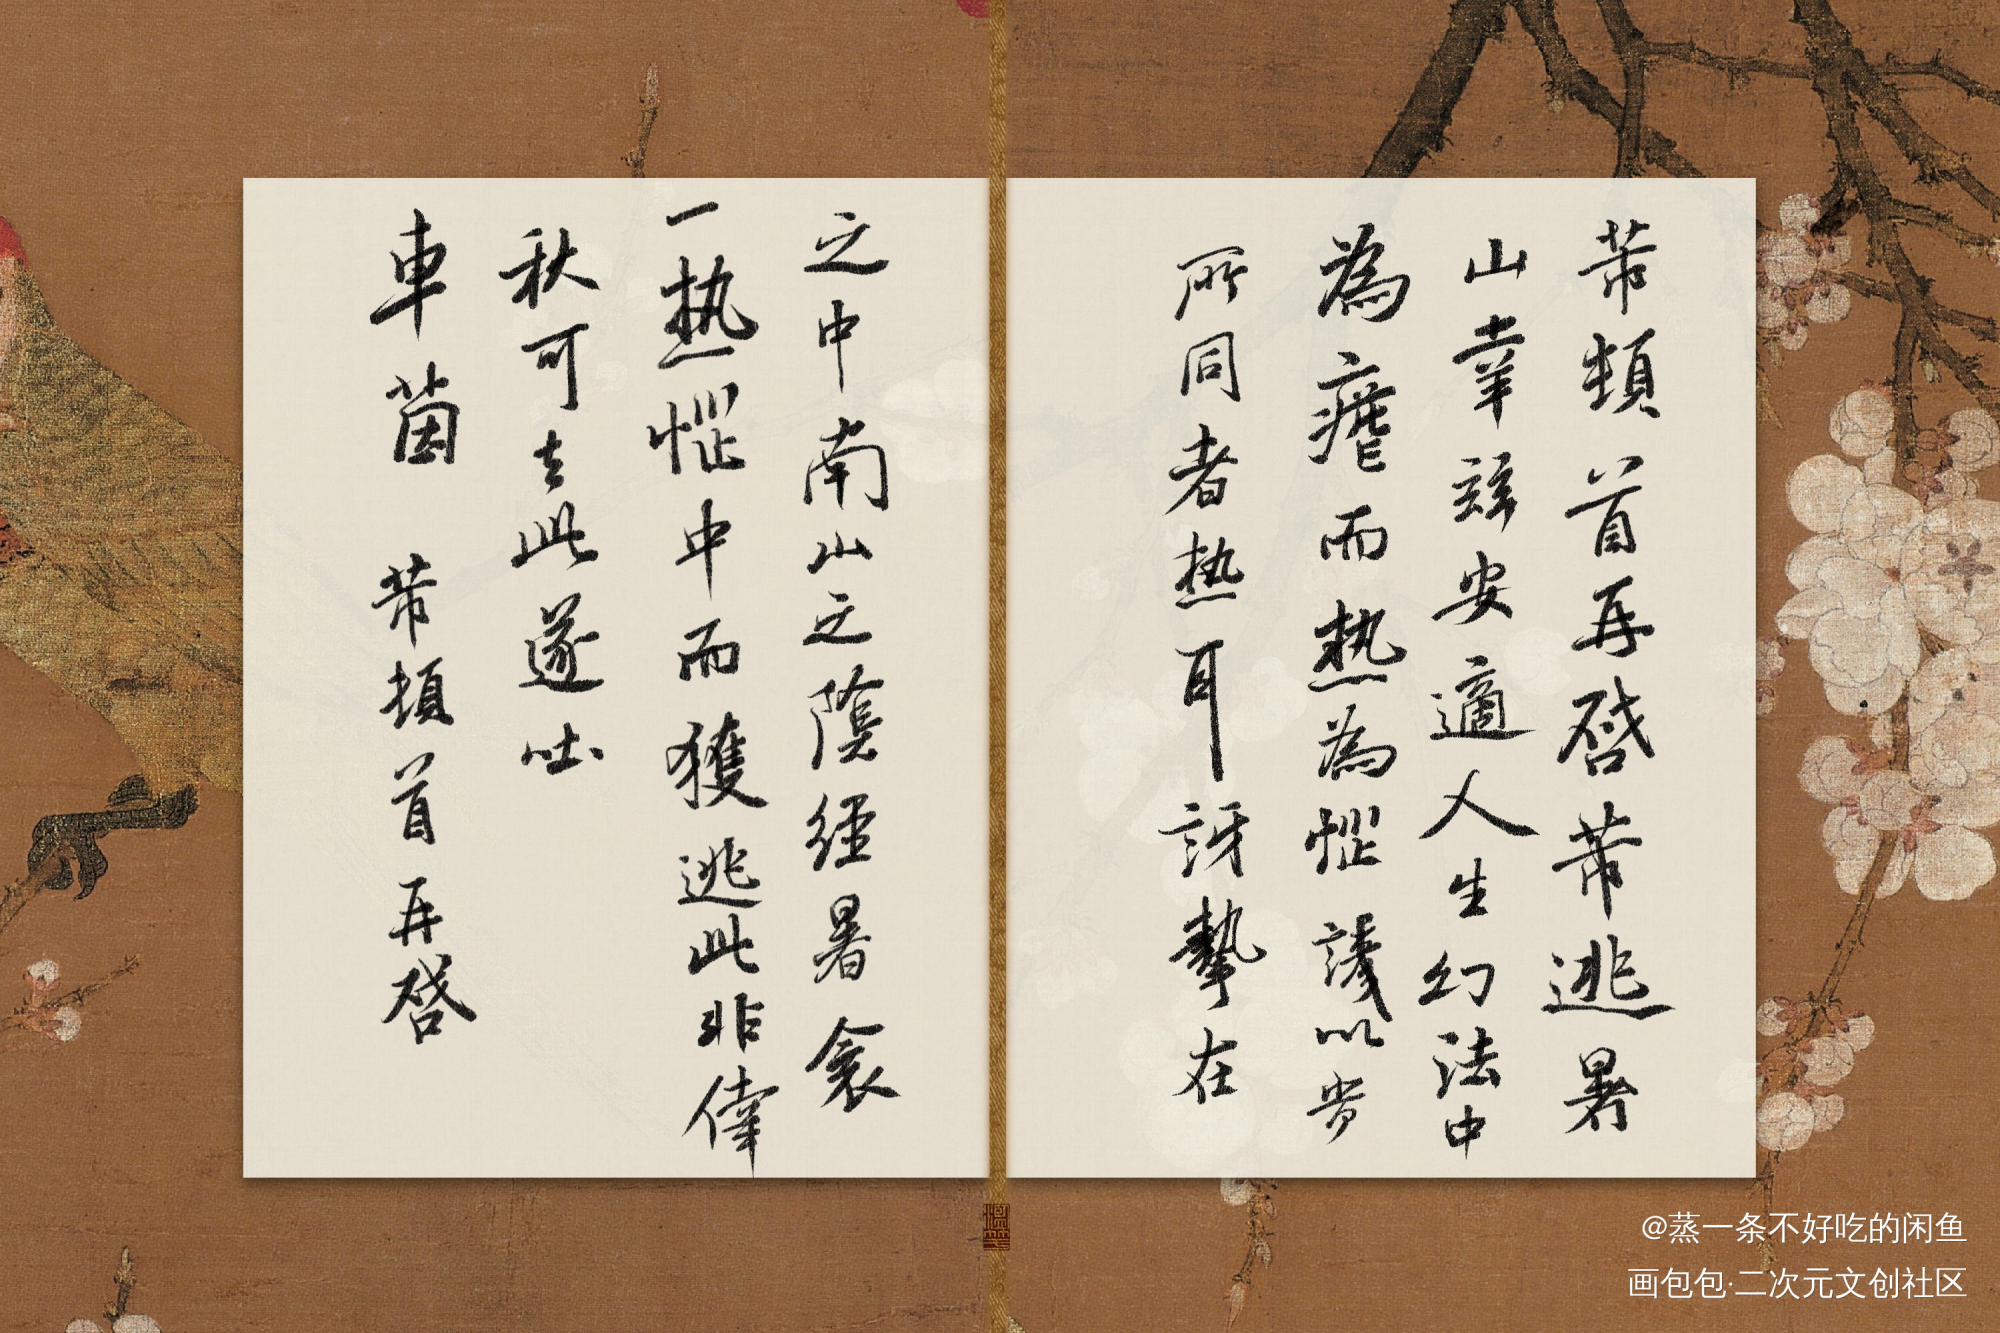 芾頓首再啓芾逃暑
山幸兹安適人生幻法中
為虐而热為惱諼以貴
所同者热耳訝摯在
之中南山之陰經暑衾
一热惱中而獲逃此非倖
秋可去此遂吐
車茵 芾頓首再啓
@蒸一条不好吃的闲鱼
画包包·二次元文创社区